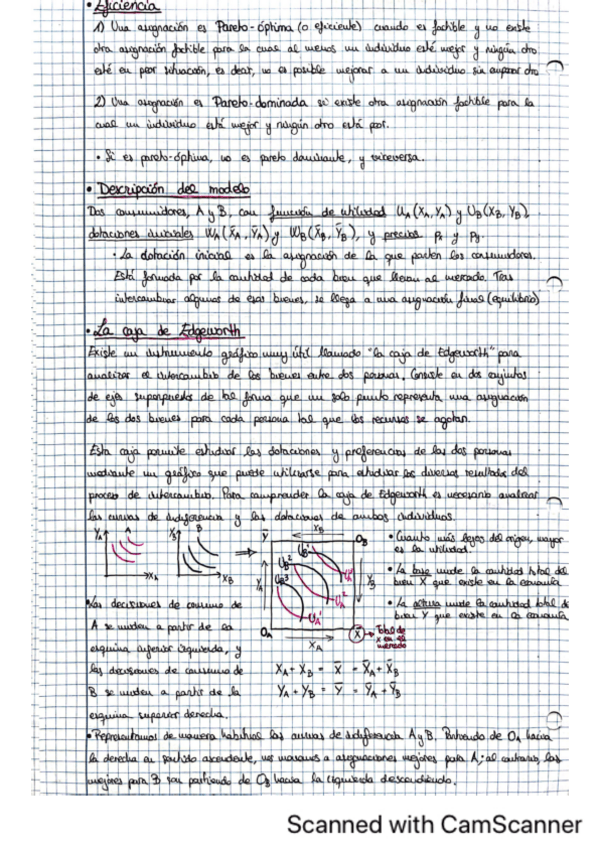 • Eficiencia
1) Una asignación es Pareto-óptima (o eficiente) cuando es factible y no existe
otra asignación factible para la cual al menos un individuo esté mejor y ningún otro
esté en peor situación, es decir, no es posible mejorar a un individuo sin empeorar otro
2) Una asignación es Pareto-dominada si existe otra asignación factible para la
cual un individuo está mejor y ningún otro está peor.
• Si es pareto-óptima, no es pareto dominante, y viceversa.
• Descripción del modelo
Dos consumidores, A y B, con función de utilidad UA(XA, YA) y UB(XB, YB)
dotaciones iniciales WA(X̄A, ȲA) y WB(X̄B, ȲB), y precios Px y Py.
• La dotación inicial es la asignación de la que parten los consumidores.
Está formada por la cantidad de cada bien que llevan al mercado. Tras
intercambiar algunos de esos bienes, se llega a una asignación final (equilibrio)
• La caja de Edgeworth
Existe un instrumento gráfico muy útil llamado "la caja de Edgeworth" para
analizar el intercambio de los bienes entre dos personas. Consiste en dos conjuntos
de ejes superpuestos de tal forma que un solo punto representa una asignación
de los dos bienes para cada persona tal que los recursos se agotan.
Esta caja permite estudiar las dotaciones y preferencias de las dos personas
mediante un gráfico que puede utilizarse para estudiar los diversos resultados del
proceso de intercambio. Para comprender la caja de Edgeworth es necesario analizar
las curvas de indiferencia y las dotaciones de ambos individuos.
YA A XA
YB B XB
⇒
Y XB OB
YA UB3 UB2 UB1 UA1 UA2 YB
OA XA X → Total de
X en el
mercado
• Cuanto más lejos del origen, mayor
es la utilidad
• La base mide la cantidad total del
bien X que existe en la economía
• La altura mide la cantidad total de
bien Y que existe en la economía
• Las decisiones de consumo de
A se miden a partir de la
esquina inferior izquierda, y
las decisiones de consumo de
B se miden a partir de la
esquina superior derecha.
XA + XB = X̄ = X̄A + X̄B
YA + YB = Ȳ = ȲA + ȲB
• Representamos de manera habitual las curvas de indiferencia A y B. Partiendo de OA hacia
la derecha en sentido ascendente, nos movemos a asignaciones mejores para A; al contrario, las
mejores para B son partiendo de OB hacia la izquierda descendiendo.
Scanned with CamScanner